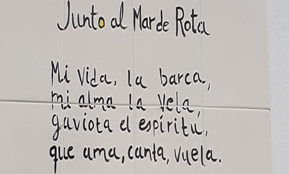 Junto al Mar de Rota
Mi vida, la barca,
mi alma la vela,
gaviota el espíritu,
que ama, canta, vuela.